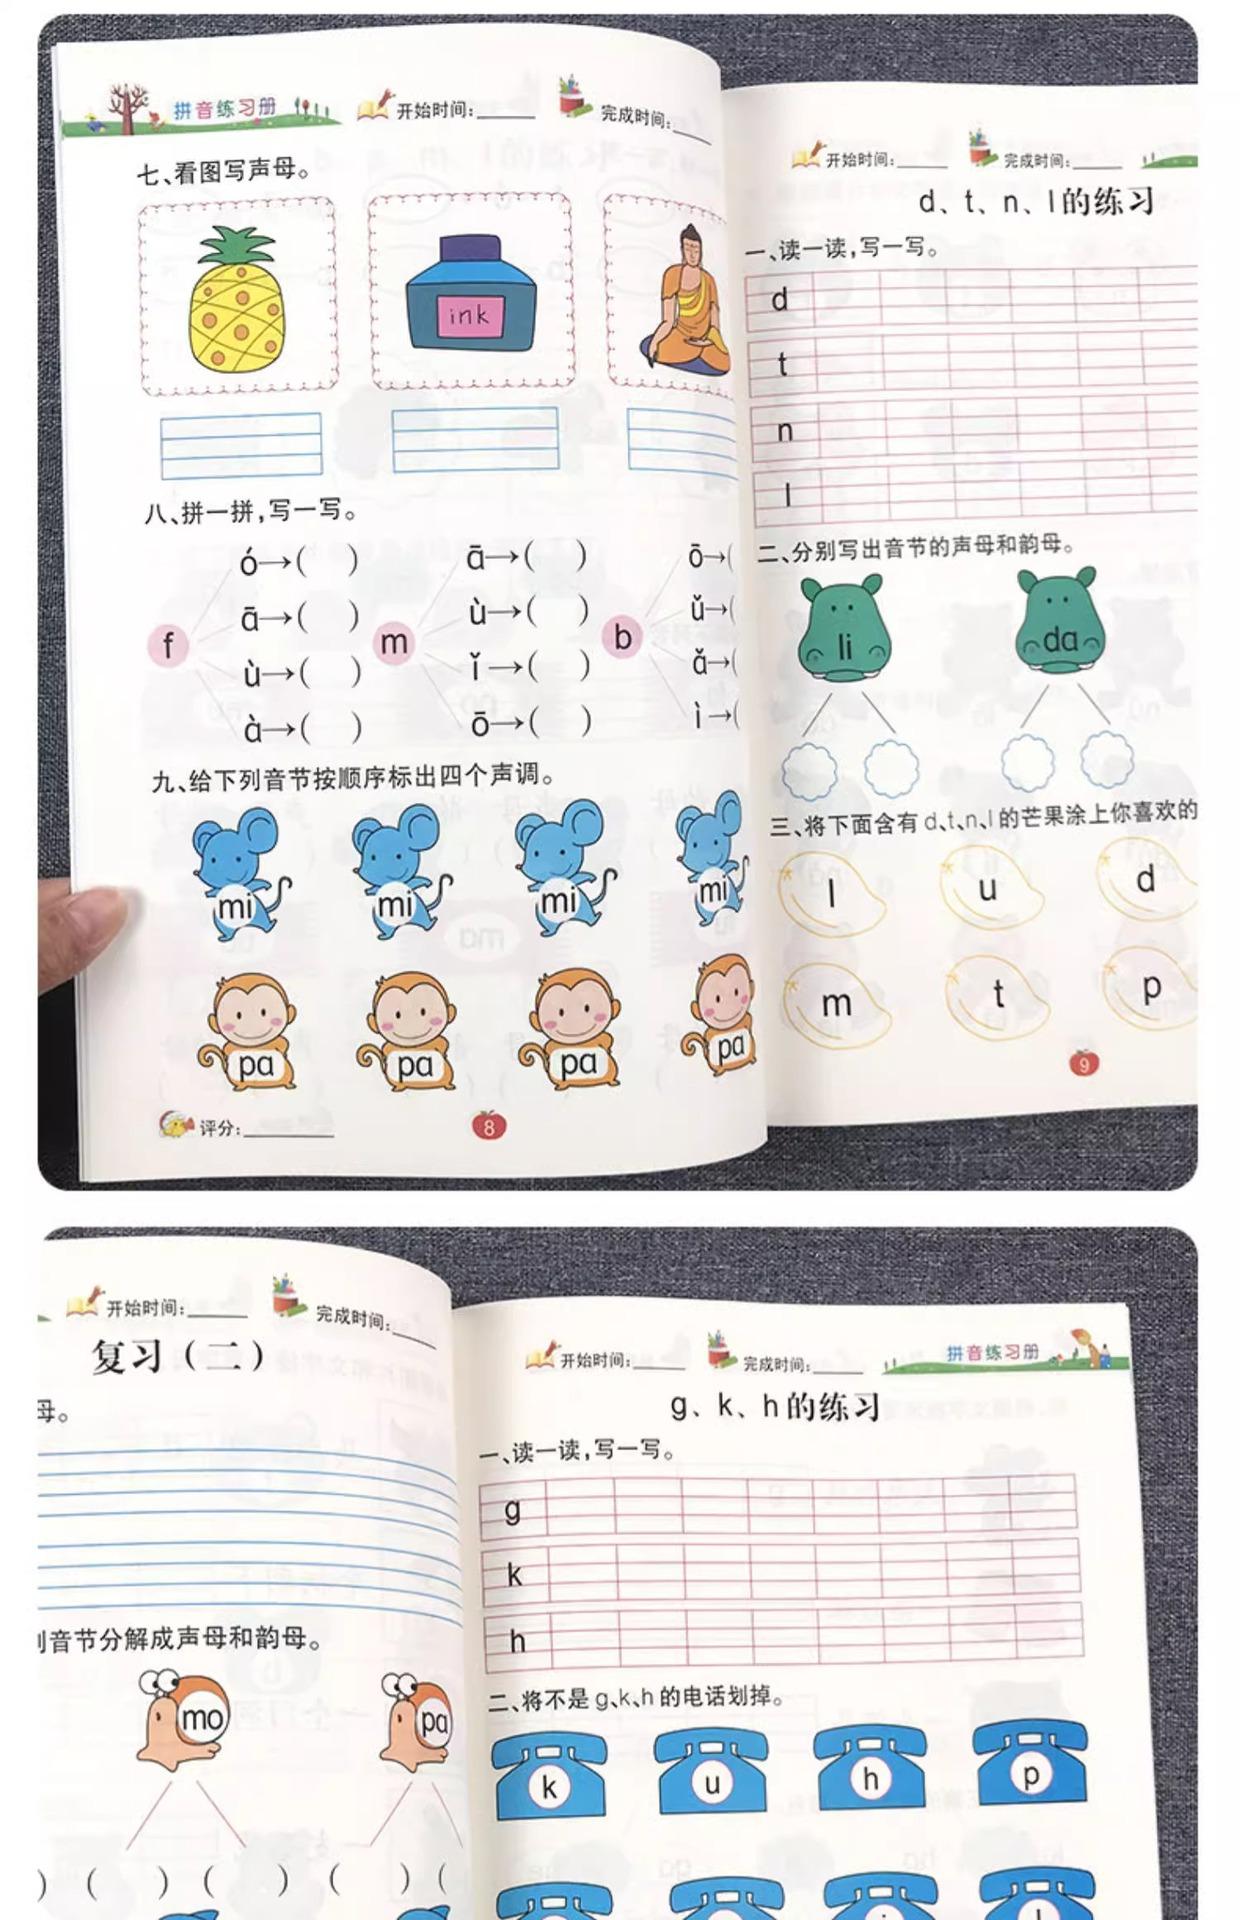 拼音练习册 开始时间: 完成时间:
七、看图写声母。
ink
八、拼一拼,写一写。
f
ó→( )
ā→( )
ù→( )
à→( )
m
ā→( )
ù→( )
ǐ→( )
ō→( )
b
ō→(
ǔ→(
ǎ→(
ì→(
九、给下列音节按顺序标出四个声调。
mi mi mi mi
pa pa pa pa
评分:
8
开始时间: 完成时间:
d、t、n、l的练习
一、读一读,写一写。
d
t
n
l
二、分别写出音节的声母和韵母。
li da
三、将下面含有d、t、n、l的芒果涂上你喜欢的
l u d
m t p
9
开始时间: 完成时间:
复习(二)
母。
音节分解成声母和韵母。
mo pa
) ( ) ( ) ( ) (
开始时间: 完成时间: 拼音练习册
g、k、h的练习
一、读一读,写一写。
g
k
h
二、将不是g、k、h的电话划掉。
k u h p